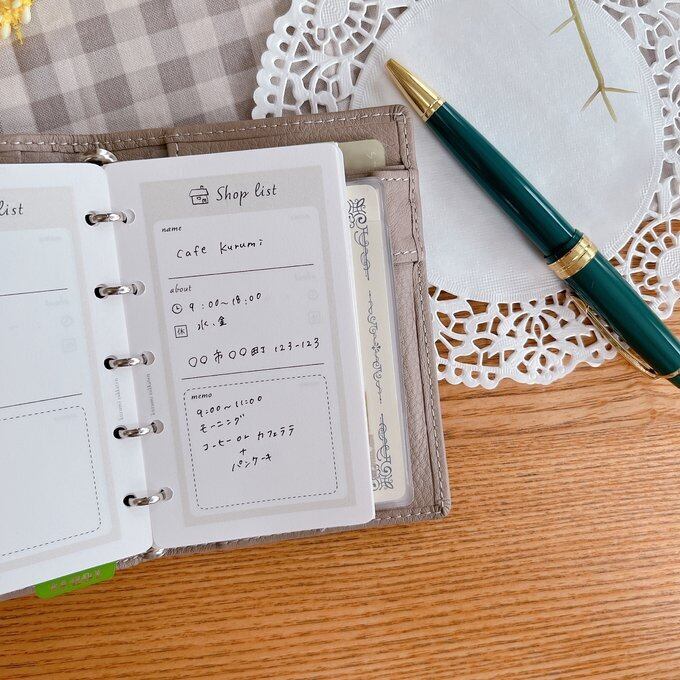 list
Shop list
name
Cafe Kurumi
about
9:00〜18:00
休 水、金
〇〇市〇〇町 123-123
memo
9:00〜11:00
モーニング
コーヒー or カフェラテ
+
パンケーキ